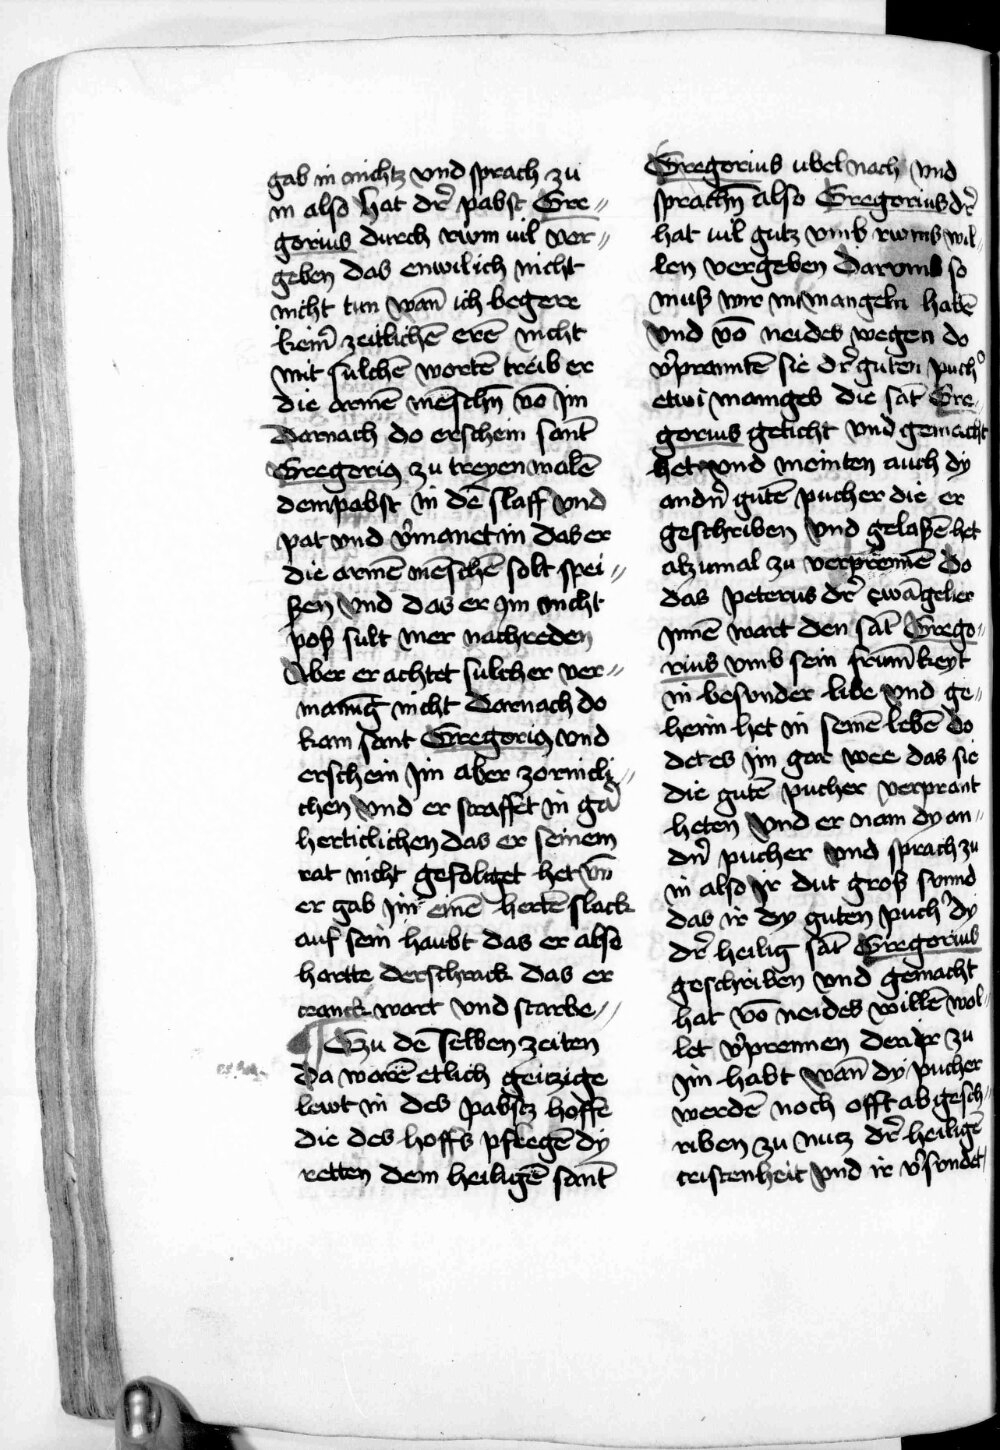 gab in nichtz vnd sprach zu
in also hat dr̄ pabst Gre〃
gorius durch rwm uil ver〃
geben das enwil ich nicht
nicht tun wan̄ ich begere
keinr̄ zeitlichē erē nicht
mit sulchē wortē treib er
die armē menschn̄ vō im
Darnach do erschein sant̄
Gregorius zu treyen malē
dem pabst in dē slaff vnd
pat vnd v̄manet in das er
die armē mēschē solt spei〃
ßen vnd das er jm nicht
poß sult mer nachreden
Aber er achtet sulcher ver〃
manūg nicht Darnach do
kam sant Gregorius vnd
erschein jm aber zornicli〃
chen vnd er straffet in gar
herticlichen das er seinem
rat nicht gefolget het vn̄
er gab jm einē hertē slack
auf sein haubt das er also
hartte derschrack das er
cranck wart vnd starbe〃
Czu dē selben zeiten
da warē etlich geitzige
lewt in des pabstz hoffe
die des hoffs pflegē dy
retten dem heiligē sant̄
Gregorius ubel nach vnd
sprachn̄ also Gregorius dr̄
hat uil gutz vmb rwms wil〃
len vergeben Darvmb so
muß wir nu mangeln habē
vnd vō neides wegen do
v̄prantten sie dr̄ guten puch
etwi maniges die sāt Gre〃
gorius geticht vnd gemacht
het vnd meinten auch dy
andn̄ gutē pucher die er
geschriben vnd gelaßē het
alzumal zu verprennē do
das peterus dr̄ ewāgelier
jnnē wart den sāt Grego〃
rius vmb sein frumkeyt
in besunder libe vnd ge〃
heim het in seinē lebē do
det es jm gar wee das sie
die gutē pucher verprant
heten vnd er nam dy an〃
dn̄ pucher vnd sprach zu
in also jr dut groß sunnd
das ir dy guten puch dy
dr̄ heilig sāt Gregorius
geschriben vnd gemacht
hat vō neides willē wol〃
let v̄prennen der ir zu
jm habt wan̄ dy pucher
werdē noch offt abgesch〃
riben zu nutz dr̄ heiligē
cristenheit vnd ir v̄sundet